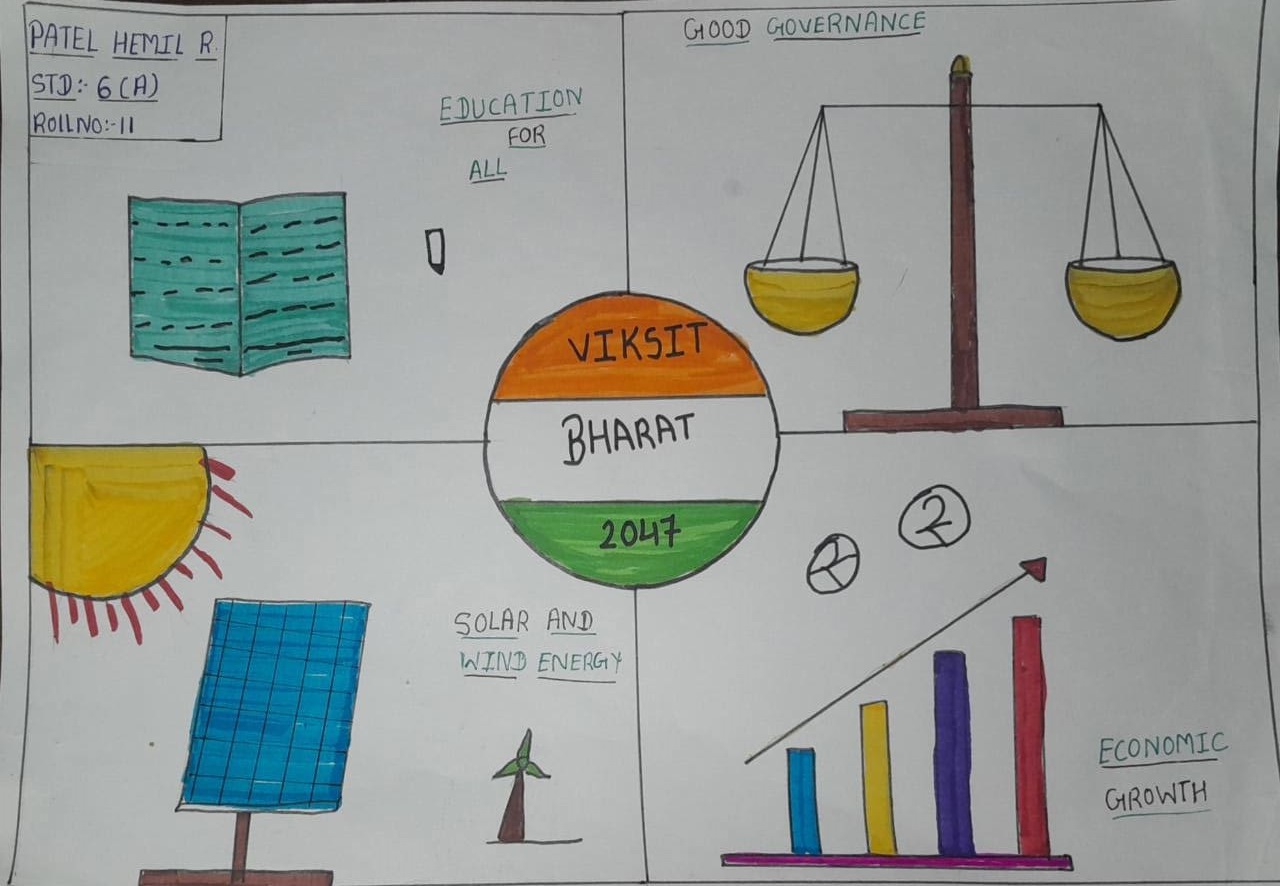 PATEL HEMIL R.
STD:- 6(A)
ROLL NO:-11
EDUCATION
FOR
ALL
GOOD GOVERNANCE
VIKSIT
BHARAT
2047
SOLAR AND
WIND ENERGY
2
2
ECONOMIC
GROWTH